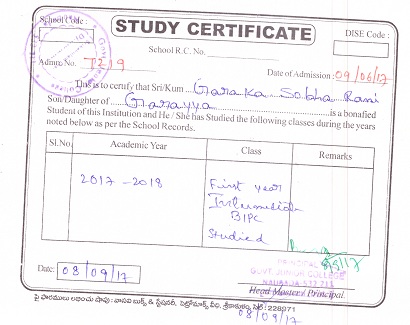 School Code :
STUDY CERTIFICATE
DISE Code :
School R.C. No.
Admn. No. T219
Date of Admission : 09/06/17
This is to certify that Sri/Kum Garaka Sobha Rani
Son/Daughter of Garayya is a bonafied
Student of this Institution and He / She has Studied the following classes during the years
noted below as per the School Records.
Sl.No. Academic Year Class Remarks
2017 - 2018 First year
Intermediate
BIPC
Studied
8/9/17
PRINCIPAL
GOVT. JUNIOR COLLEGE
Date: 08/09/17
Head Master / Principal.
228971
08/09/17